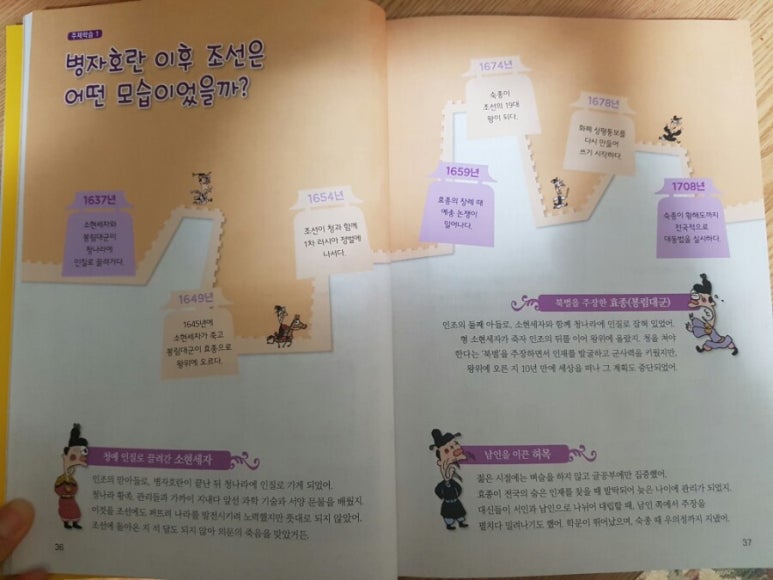 주제학습 1
병자호란 이후 조선은
어떤 모습이었을까?
1637년
소현세자와
봉림대군이
청나라에
인질로 끌려가다.
1649년
1645년에
소현세자가 죽고
봉림대군이 효종으로
왕위에 오르다.
1654년
조선이 청과 함께
1차 러시아 정벌에
나서다.
1659년
효종의 장례 때
예송 논쟁이
일어나다.
1674년
숙종이
조선의 19대
왕이 되다.
1678년
화폐 상평통보를
다시 만들어
쓰기 시작하다.
1708년
숙종이 황해도까지
전국적으로
대동법을 실시하다.
청에 인질로 끌려간 소현세자
인조의 맏아들로, 병자호란이 끝난 뒤 청나라에 인질로 가게 되었어.
청나라 황족, 관리들과 가까이 지내다 앞선 과학 기술과 서양 문물을 배웠지.
이것을 조선에도 퍼뜨려 나라를 발전시키려 노력했지만 뜻대로 되지 않았어.
조선에 돌아온 지 석 달도 되지 않아 의문의 죽음을 맞았거든.
36
북벌을 주장한 효종(봉림대군)
인조의 둘째 아들로, 소현세자와 함께 청나라에 인질로 잡혀 있었어.
형 소현세자가 죽자 인조의 뒤를 이어 왕위에 올랐지. 청을 쳐야
한다는 '북벌'을 주장하면서 인재를 발굴하고 군사력을 키웠지만,
왕위에 오른 지 10년 만에 세상을 떠나 그 계획도 중단되었어.
남인을 이끈 허목
젊은 시절에는 벼슬을 하지 않고 글공부에만 집중했어.
효종이 전국의 숨은 인재를 찾을 때 발탁되어 늦은 나이에 관리가 되었지.
대신들이 서인과 남인으로 나뉘어 대립할 때, 남인 쪽에서 주장을
펼치다 밀려나기도 했어. 학문이 뛰어났으며, 숙종 때 우의정까지 지냈어.
37